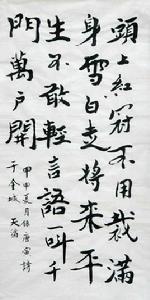 頭上紅冠不用裁滿
身雪白走將来平
生不敢輕言語一叫千
門萬戶開
甲申夏月錄唐寅詩
于金城